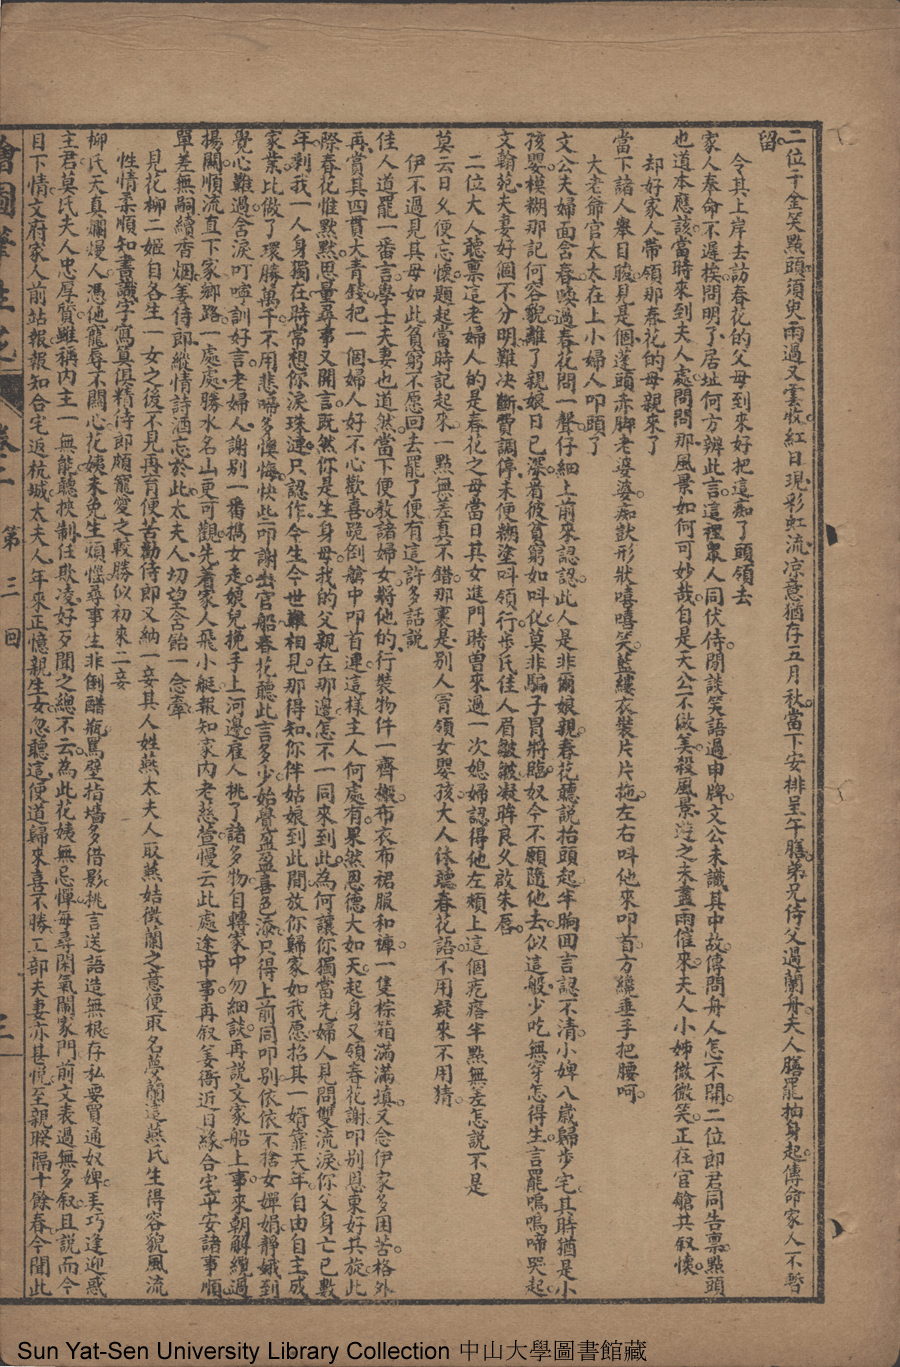 二位千金笑點頭須臾雨過又雲收紅日現彩虹流凉意猶存五月秋當下安排呈午膳弟兄侍父過蘭舟夫人膳罷抽身起傳命家人不暫
留
令其上岸去訪春花的父母到來好把這痴丫頭領去
家人奉命不遲挨問明了居址何方辨此言這裡衆人同伏侍閒談笑語過申牌文公未識其中故傳問舟人怎不開二位郎君同告禀點頭
也道本應該當時來到夫人處問問那風景如何可妙哉自是天公不做美殺風景遊之夫盡雨催來夫人小姊微微笑正在官艙共叙懷
却好家人帶領那春花的母親來了
當下諸人舉目睃見是個蓬頭赤脚老婆婆痴獃形狀嘻嘻笑藍縷衣裝片片拖左右呌他來叩首方纔垂手把腰呵
大老爺官太太在上小婦人叩頭了
文公夫婦面含春喚過春花問一聲仔細上前來認認此人是非爾娘親春花聽說抬頭起半晌回言認不清小婢八歲歸步宅其時猶是小
孩嬰模糊那記何容貌離了親娘日已深看彼貧窮如呌化莫非騙子冒將臨奴今不願隨他去似這般少吃無穿怎得生言罷嗚嗚啼哭起
文翰苑夫妻好個不分明難决斷費調停未便糊塗呌領行步氏佳人眉皺皺凝眸良久啟朱唇
二位大人聽禀這老婦人的是春花之母當日其女進門時曾來過一次媳婦認得他左頰上這個疙瘩半點無差怎說不是
莫云日久便忘懷題起當時記起來一點無差真不錯那裏是別人冐領女嬰孩大人休聽春花語不用疑來不用猜
伊不過見其母如此貧窮不愿回去罷了便有這許多話說
佳人道罷一番言學士夫妻也道然當下便敎諸婦女將他的行裝物件一齊搬布衣布裙服和褲一隻棕箱滿滿填又念伊家多困苦格外
再賞其四貫大青錢把一個婦人好不心歡喜跪倒艙中叩首連這樣主人何處有果然恩德大如天起身又領春花謝叩別恩東好共旋此
際春花惟默默思量尋事又開言既然你是生身母我的父親在那邊怎不一同來到此為何讓你獨當先婦人見問雙流淚你父身亡已數
年剩我一人身獨在時常想你淚珠漣只認作今生今世難相見那得知你伴姑娘到此間放你歸家如我愿招其一婿靠天年自由自主成
家業比做了環勝萬千不用悲啼多懊悔快些叩謝出官船春花聽此言多少始覺盈盈喜色添只得上前同叩別依依不捨女嬋娟靜娥到
覺心難過含淚叮嚀訓好言老婦人謝別一番攜女走娘兒挽手上河邊雇人桃了諸多物自轉家中勿細談再說文家船上事來朝解纜過
揚關順流直下家鄉路一處處勝水名山更可觀先着家人飛小艇報知家內老慈萱慢云此處途中事再叙姜衙近日緣合宅平安諸事順
單差無嗣續香烟姜侍郎縱情詩酒忘於此太夫人切望含飴一念牽
見花柳二姬自各生一女之後不見再育便苦勸侍郎又納一妾其人姓燕太夫人取燕姞徵蘭之意便取名夢蘭這燕氏生得容貌風流
性情柔順知書識字寫真俱精侍郎頗寵愛之較勝似初來二妾
柳氏天真爛熳人憑他寵辱不關心花姨未免生煩惱尋事生非倒醋瓶罵壁指墻多借影桃言送語造無根存私要買通奴婢乖巧逢迎惑
主君莫氏夫人忠厚質雖稱內主一無能聽挾制任欺凌好歹聞之總不云為此花姨無忌憚每尋閑氣鬧家門前文表過無多叙且説而今
目下情文府家人前站報報知合宅返杭城太夫人年來正憶親生女忽聽這便道歸來喜不勝工部夫妻亦甚悅至親睽隔十餘春今聞此
繪圖筆生花 卷二 第三回 三
Sun Yat-Sen University Library Collection 中山大學圖書館藏